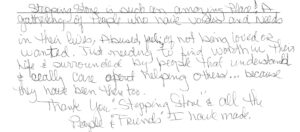 Stepping Stone is such an amazing Place! A
gathering of People who have voids and needs
in their lives, Abused, not being loved or
wanted. Just needing to find worth in their
life & surrounded by people that understand
& really care about helping others... because
they have been there too.
Thank You "Stepping Stone" & all the
People & "Friends" I have made.